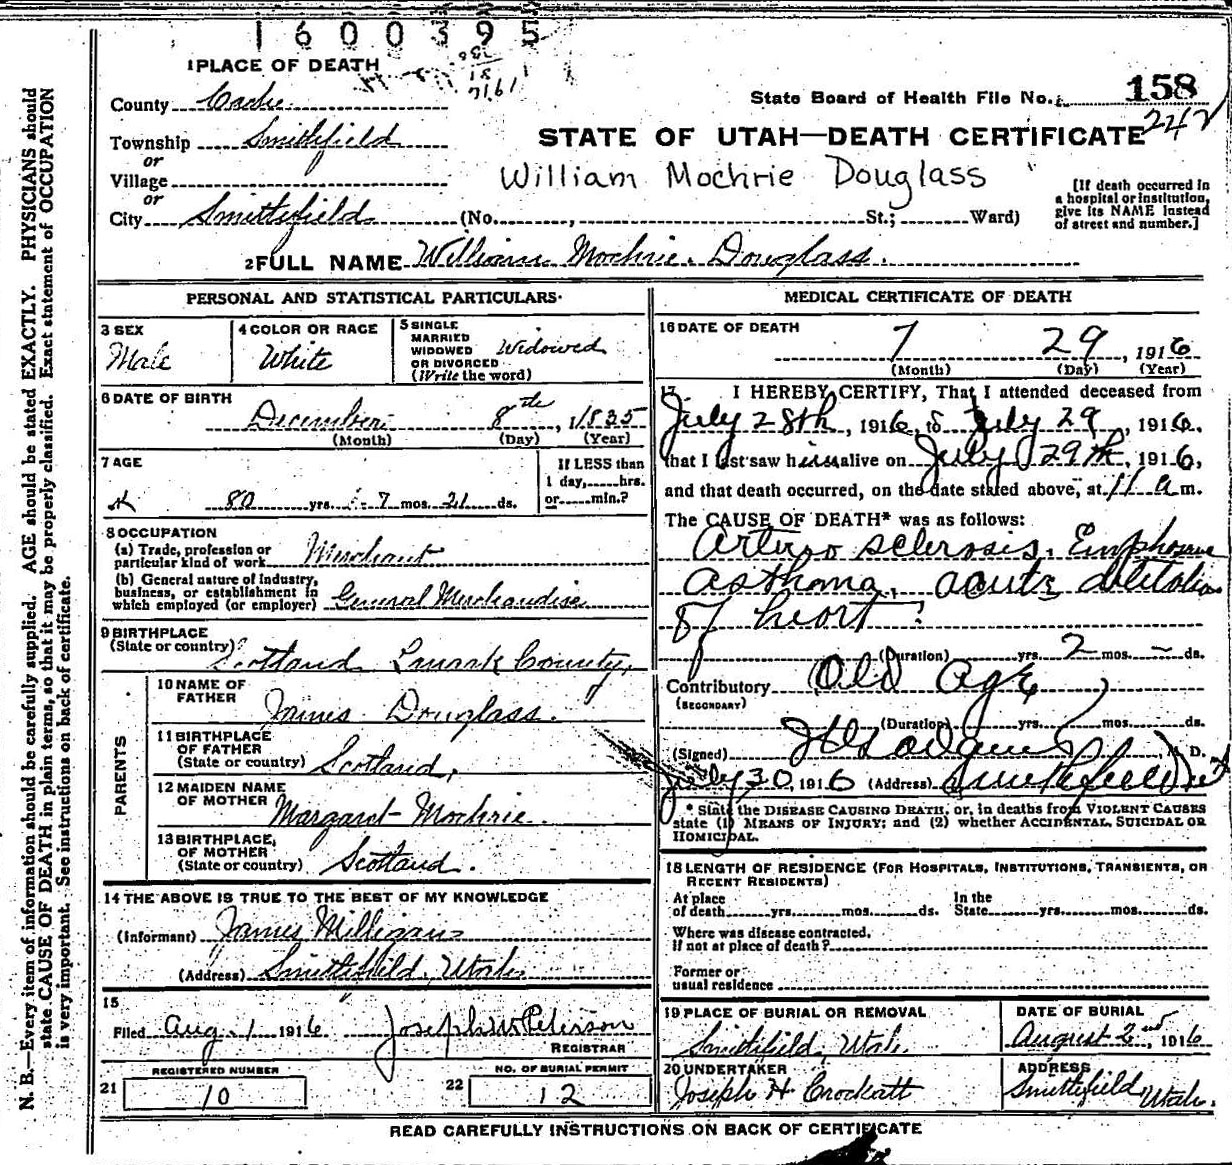 1600395
1 PLACE OF DEATH
County Cache
State Board of Health File No. 158
242
Township Smithfield
or
Village
or
City Smithfield (No. , St.; Ward)
STATE OF UTAH—DEATH CERTIFICATE
William Mochrie Douglass
[If death occurred in
a hospital or institution,
give its NAME instead
of street and number.]
2 FULL NAME William Mochrie Douglass.
PERSONAL AND STATISTICAL PARTICULARS
3 SEX
Male
4 COLOR OR RACE
White
5 SINGLE
MARRIED
WIDOWED
OR DIVORCED
(Write the word)
Widowed
6 DATE OF BIRTH
December 8th, 1835
(Month) (Day) (Year)
7 AGE
80 yrs. 7 mos. 21 ds.
If LESS than
1 day, hrs.
or min.?
8 OCCUPATION
(a) Trade, profession or
particular kind of work Merchant
(b) General nature of industry,
business, or establishment in
which employed (or employer) General Merchandise
9 BIRTHPLACE
(State or country) Scotland Lnark County,
PARENTS
10 NAME OF
FATHER
James Douglass.
11 BIRTHPLACE
OF FATHER
(State or country) Scotland,
12 MAIDEN NAME
OF MOTHER
Margaret Mochrie.
13 BIRTHPLACE
OF MOTHER
(State or country) Scotland.
14 THE ABOVE IS TRUE TO THE BEST OF MY KNOWLEDGE
(Informant) James Milligan
(Address) Smithfield, Utah
15
Filed Aug. 1 1916 Joseph W Peterson
REGISTRAR
21 REGISTERED NUMBER
10
22 NO. OF BURIAL PERMIT
12
MEDICAL CERTIFICATE OF DEATH
16 DATE OF DEATH
7 29, 1916
(Month) (Day) (Year)
17 I HEREBY CERTIFY, That I attended deceased from
July 28th, 1916, to July 29, 1916,
that I last saw him alive on July 29th, 1916,
and that death occurred, on the date stated above, at 11 a m.
The CAUSE OF DEATH* was as follows:
Arterio sclerosis. 
asthma, acute
of heart
(Duration) yrs. 2 mos. – ds.
Contributory Old Age
(SECONDARY)
(Duration) yrs. mos. ds.
(Signed) M. D.
July 30, 1916 (Address) Smithfield
* State the DISEASE CAUSING DEATH, or, in deaths from VIOLENT CAUSES
state (1) MEANS OF INJURY; and (2) whether ACCIDENTAL, SUICIDAL OR
HOMICIDAL.
18 LENGTH OF RESIDENCE (FOR HOSPITALS, INSTITUTIONS, TRANSIENTS, OR
RECENT RESIDENTS)
At place
of death yrs. mos. ds.
In the
State yrs. mos. ds.
Where was disease contracted.
If not at place of death?
Former or
usual residence
19 PLACE OF BURIAL OR REMOVAL
Smithfield, Utah.
DATE OF BURIAL
August 2nd, 1916
20 UNDERTAKER
Joseph H Crockatt
ADDRESS
Smithfield Utah.
READ CAREFULLY INSTRUCTIONS ON BACK OF CERTIFICATE
N. B.—Every item of information should be carefully supplied. AGE should be stated EXACTLY. PHYSICIANS should
state CAUSE OF DEATH in plain terms, so that it may be properly classified. Exact statement of OCCUPATION
is very important. See instructions on back of certificate.